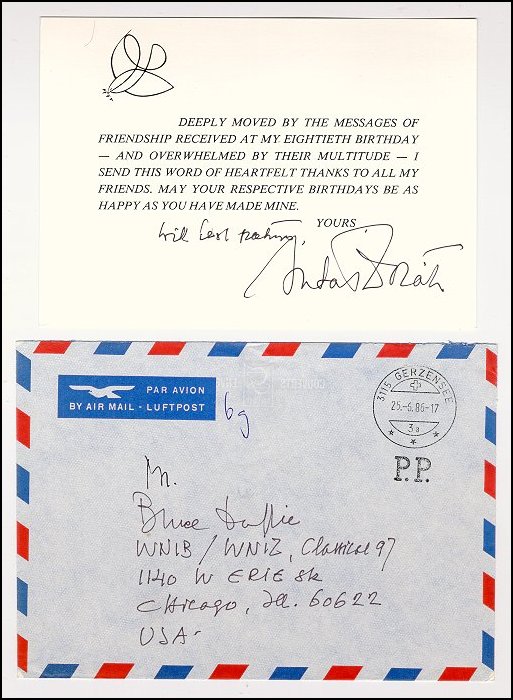 DEEPLY MOVED BY THE MESSAGES OF
FRIENDSHIP RECEIVED AT MY EIGHTIETH BIRTHDAY
— AND OVERWHELMED BY THEIR MULTITUDE — I
SEND THIS WORD OF HEARTFELT THANKS TO ALL MY
FRIENDS. MAY YOUR RESPECTIVE BIRTHDAYS BE AS
HAPPY AS YOU HAVE MADE MINE.
YOURS
Antal Doráti
PAR AVION
BY AIR MAIL - LUFTPOST
6g
3115 GERZENSEE
25.-6.86-17
3a
P.P.
Mr.
Bruce Duffie
WNIB / WNIZ, Classical 97
1140 W ERIE St
Chicago, Ill. 60622
USA-